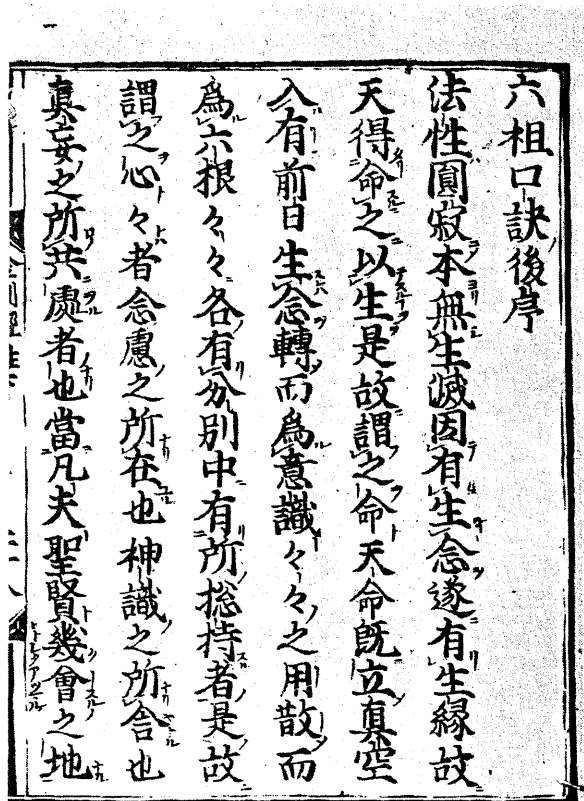 六祖口訣後序
法性圓寂本無生滅因有生念遂有生緣故
天得命之以生是故謂之命天命既立真空
入有前日生念轉而爲意識々々之用散而
爲六根々々各有分別中有所捴持者是故
謂之心々者念慮之所在也神識之所舍也
眞妄之所共處者也當凡夫聖賢幾會之地